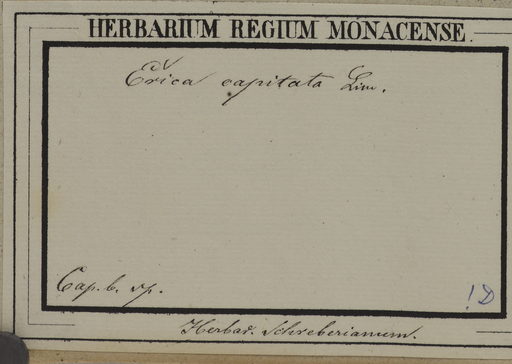 HERBARIUM REGIUM MONACENSE.
Erica capitata Lin.
Cap. b. sp.
!D
Herbar. Schreberianum.